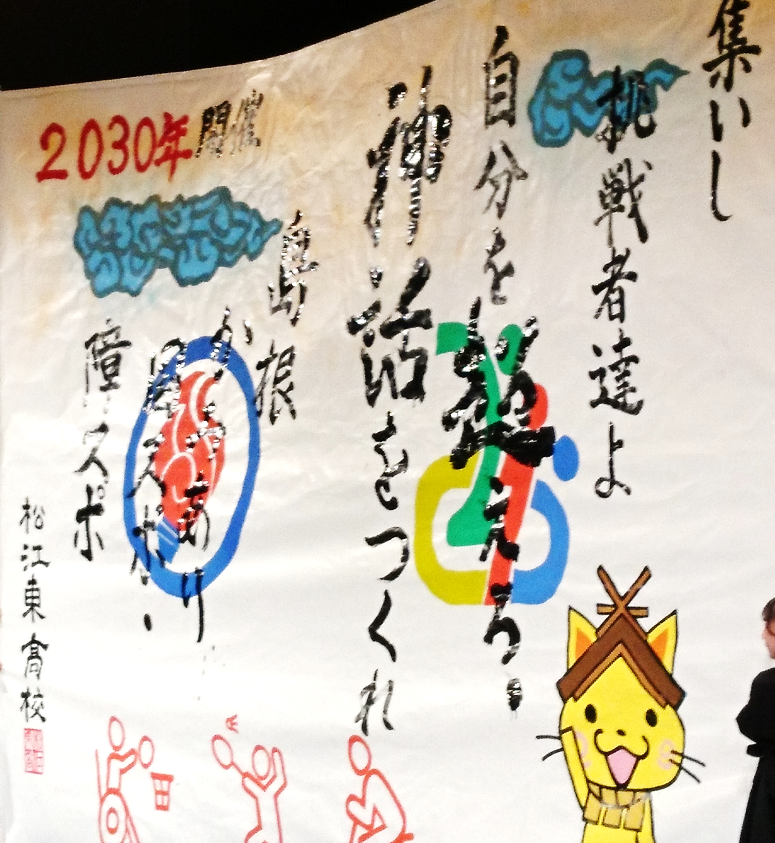 集いし
挑戦者達よ
自分を超えろ、
神話をつくれ
島根
かみあり
国スポ・
障スポ
2030年開催
松江東高校